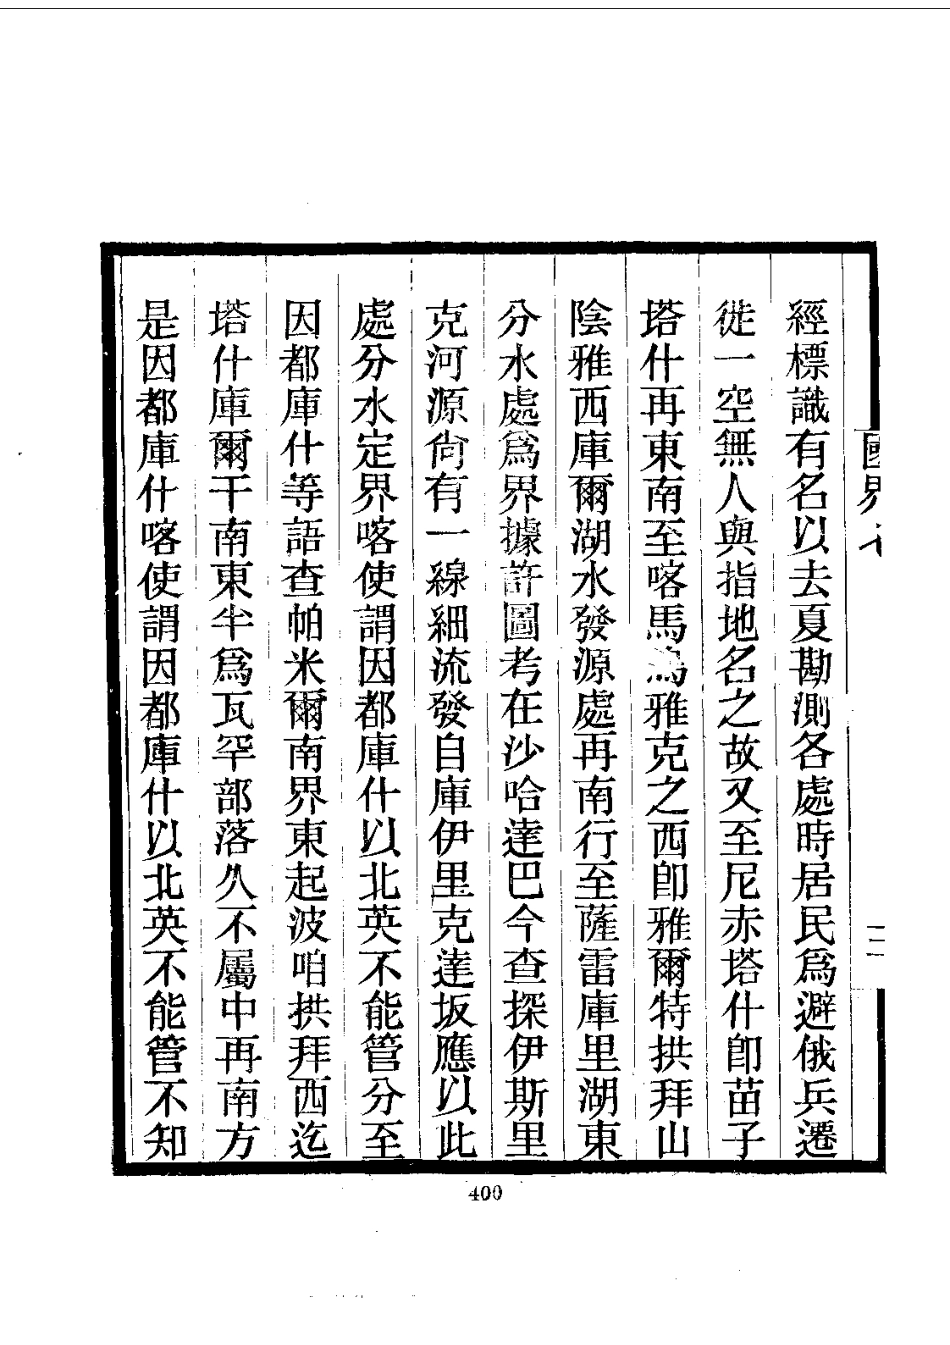 國界七
二
經標識有名以去夏勘測各處時居民爲避俄兵遷
徙一空無人與指地名之故又至尼赤塔什卽苗子
塔什再東南至喀馬烏雅克之西卽雅爾特拱拜山
陰雅西庫爾湖水發源處再南行至薩雷庫里湖東
分水處爲界據許圖考在沙哈達巴今查探伊斯里
克河源尙有一線細流發自庫伊里克達坂應以此
處分水定界喀使謂因都庫什以北英不能管分至
因都庫什等語查帕米爾南界東起波咱拱拜西迄
塔什庫爾干南東半爲瓦罕部落久不屬中再南方
是因都庫什喀使謂因都庫什以北英不能管不知
400